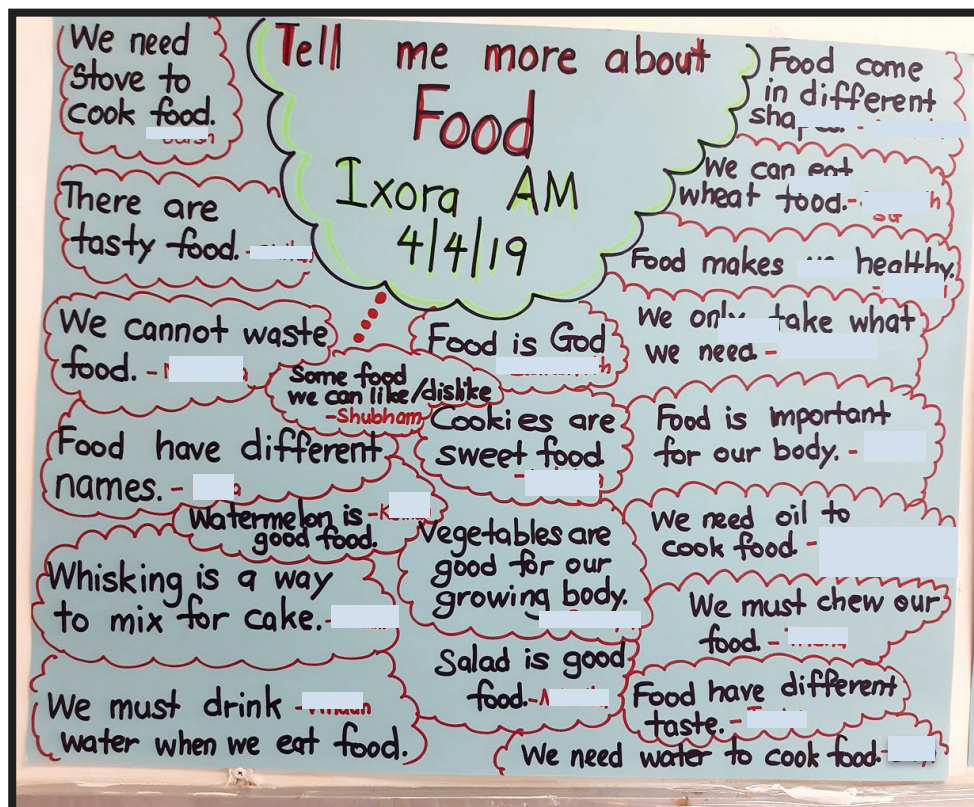 Tell me more about
Food
Ixora AM
4/4/19
We need
Stove to
cook food.
There are
tasty food.
We cannot waste
food.
Food have different
names.
Watermelon is
good food.
Whisking is a way
to mix for cake.
We must drink
water when we eat food.
Some food
we can like/dislike
-Shubham
Food is God
Cookies are
sweet food
Vegetables are
good for our
growing body.
Salad is good
food.
Food come
in different
We can eat
wheat food.
Food makes healthy.
We only take what
we need.
Food is important
for our body.
We need oil to
cook food.
We must chew our
food.
Food have different
taste.
We need water to cook food.